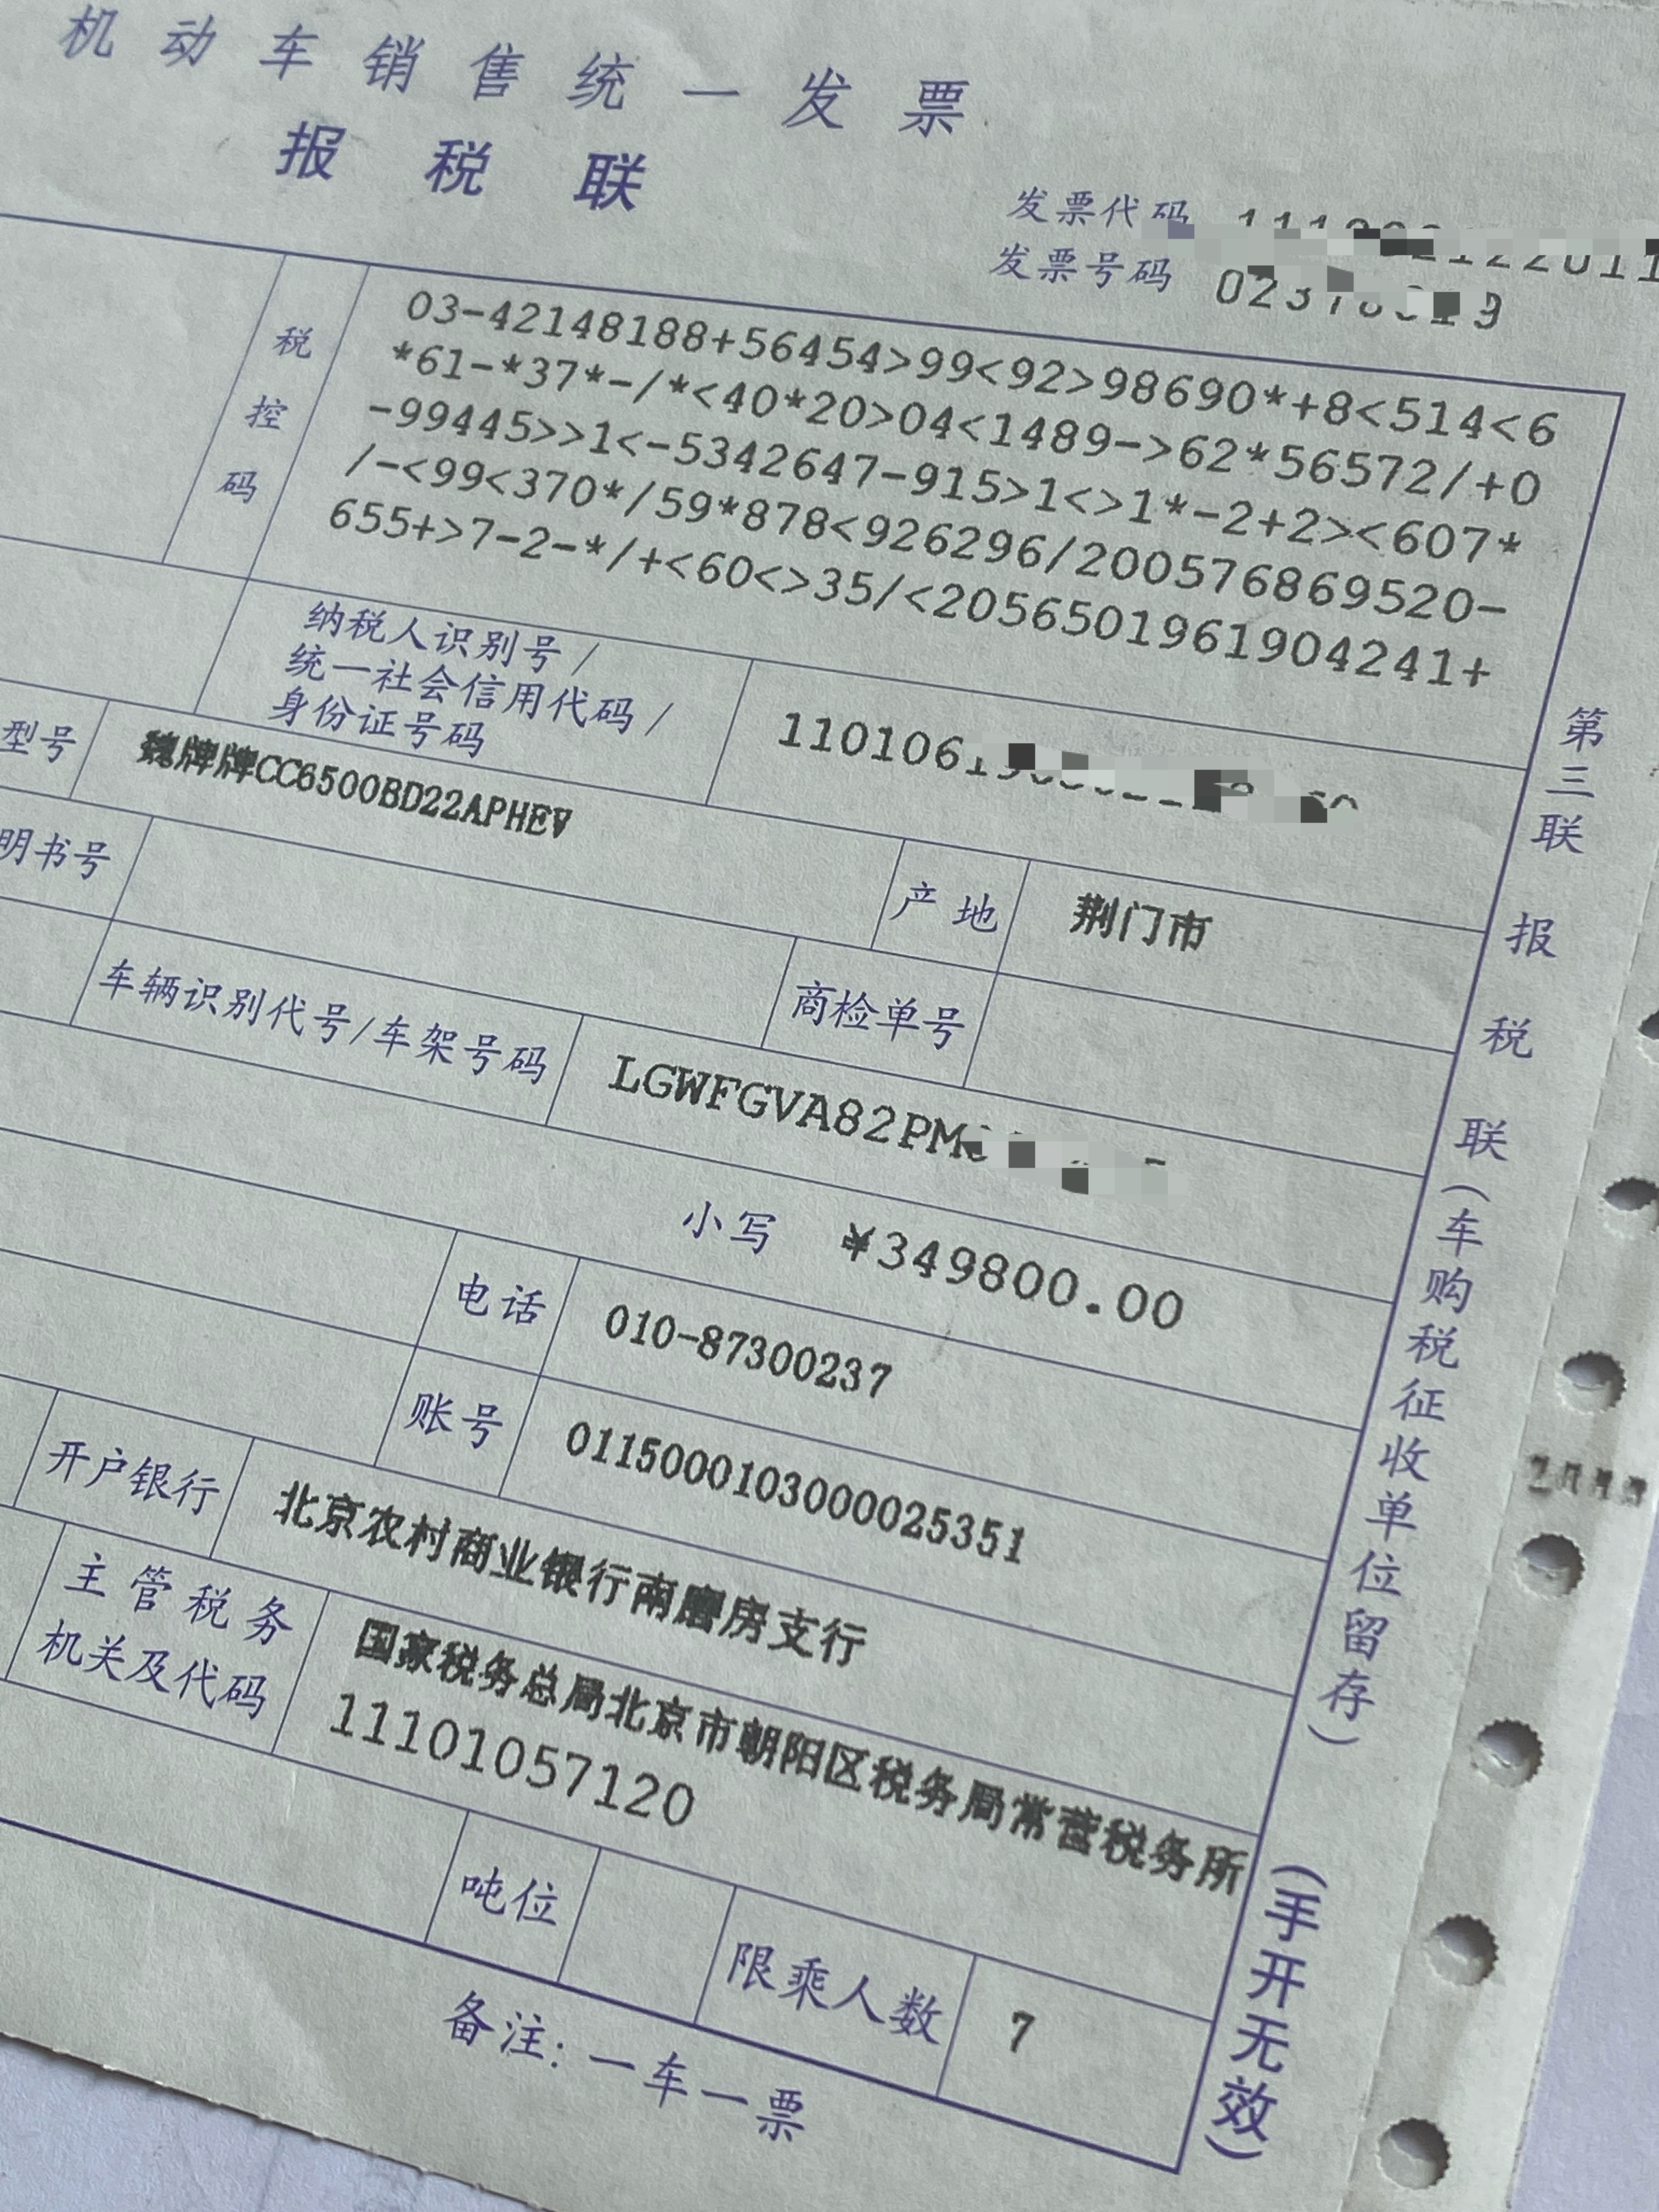 机动车销售统一发票
报税联
发票代码
发票号码
税控码
03-42148188+56454>99<92>98690*+8<514<6
*61-*37*-/*<40*20>04<1489->62*56572/+0
-99445>>1<-5342647-915>1<>1*-2+2><607*
/-<99<370*/59*878<926296/200576869520-
655+>7-2-*/+<60<>35/<2056501961904241+
纳税人识别号/
统一社会信用代码/
身份证号码
110106
型号
魏牌牌CC6500BD22APHEV
产地
荆门市
明书号
商检单号
车辆识别代号/车架号码
LGWFGVA82PM
小写 ¥349800.00
电话
010-87300237
账号
0115000103000025351
开户银行
北京农村商业银行南磨房支行
主管税务
机关及代码
国家税务总局北京市朝阳区税务局常营税务所
11101057120
吨位
限乘人数
7
备注:一车一票
第三联 报税联(车购税征收单位留存)
(手开无效)